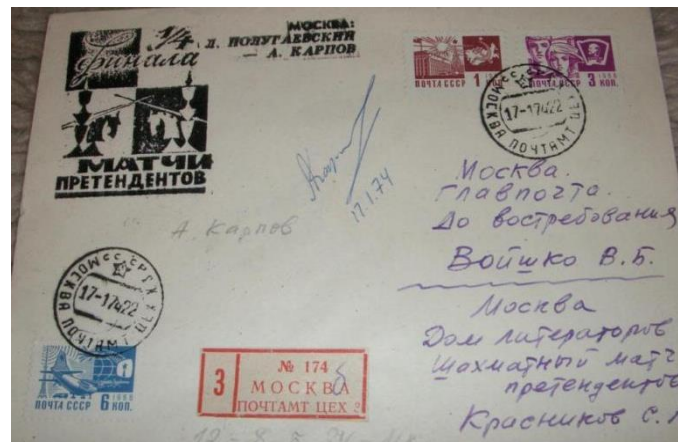 МОСКВА:
1/4 Л. ПОЛУГАЕВСКИЙ
финала — А. КАРПОВ
МАТЧИ
ПРЕТЕНДЕНТОВ
ПОЧТА СССР 1 КОП.
ПОЧТА СССР 3 КОП.
МОСКВА ПОЧТАМТ ЦЕХ
17-1-7422
17.1.74
А. Карпов
Москва.
Главпочта.
До востребования
Войшко В.Б.
Москва
Дом литераторов
Шахматный матч
претендентов
Красников С.
МОСКВА ПОЧТАМТ ЦЕХ
17-1-7422
ПОЧТА СССР 6 КОП.
З
№ 174
МОСКВА
ПОЧТАМТ ЦЕХ